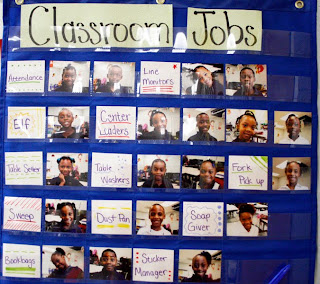 Classroom Jobs
Attendance
Line
Monitors
Elf
Center
Leaders
Table Setter
Table
Washers
Fork
Pick up
Sweep
Dust Pan
Soap
Giver
Bookbags
Sticker
Manager